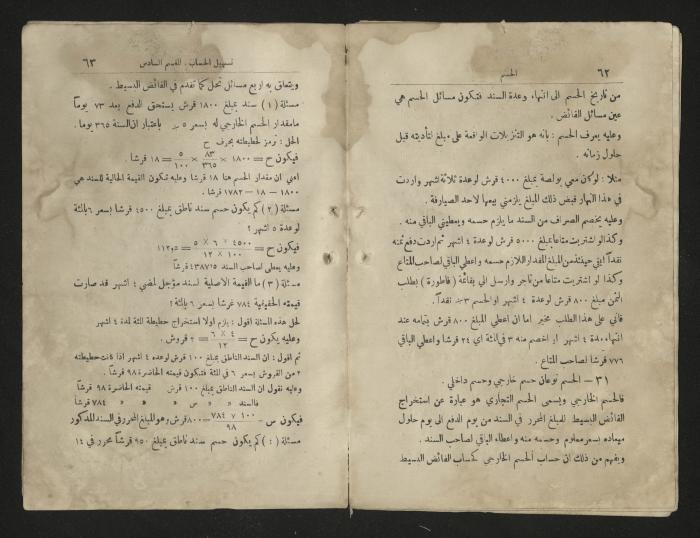 ٦٢
الحسم
من تاريخ الحسم الى انتهاء وعدة السند فتكون مسائل الحسم هي
عين مسائل الفائض .
وعليه يعرف الحسم : بانه هو التنزيلات الواقعة على مبلغ لتأديته قبل
حلول زمانه .
مثلا : لوكان معي بوليصة بمبلغ ٤٠٠٠ قرش لوعدة ثلاثة اشهر واردت
في هذا النهار قبض ذلك المبلغ يلزمني بيعها لاحد الصيارفة .
وعليه يخصم الصراف من السند ما يلزم حسمه ويعطيني الباقي منه .
وكذا لو اشتريت متاعا بمبلغ ٥٠٠٠ قرش لوعدة ٤ اشهر ثم اردت دفع ثمنه
نقدا يلزمني حينئذ من المبلغ المقدار اللازم حسمه واعطي الباقي لصاحب المتاع
وكذا لو اشتريت متاعا من تاجر وارسل الي بقائمة ( فاطورة ) بطلب
الثمن مبلغ ٨٠٠ قرش لوعدة ٤ اشهر او الحسم ٣٪ نقدا .
فاني على هذا الطلب مخير اما ان اعطي المبلغ ٨٠٠ قرش بتمامه عند
انتهاء مدة ٤ اشهر او اخصم منه ٣ في المئة اي ٢٤ قرشا واعطي الباقي
٧٧٦ قرشا لصاحب المتاع .
٣١ – الحسم نوعان حسم خارجي وحسم داخلي .
فالحسم الخارجي ويسمى الحسم التجاري هو عبارة عن استخراج
الفائض البسيط للمبلغ المحرر في السند من يوم الدفع الى يوم حلول
ميعاده بسعر معلوم وحسمه منه واعطاء الباقي لصاحب السند .
ويفهم من ذلك ان حساب الحسم الخارجي كحساب الفائض البسيط
تسهيل الحساب . القسم السادس
٦٣
ويتعلق به اربع مسائل تحل كما تقدم في الفائض البسيط .
مسئلة (١) سند بمبلغ ١٨٠٠ قرش يستحق الدفع بعد ٧٣ يوما
ما مقدار الحسم الخارجي له بسعر ٥٪ باعتبار ان السنة ٣٦٥ يوما .
الحل : نرمز لحطيطته بحرف ح
فيكون ح = ١٨٠٠ × ٨٣/٣٦٥ × ٥/١٠٠ = ١٨ قرشا .
اعني ان مقدار الحسم هنا ١٨ قرشا وعليه تكون القيمة الحالية للسند هي
١٨٠٠ – ١٨ = ١٧٨٢ قرشا .
مسئلة (٢) كم يكون حسم سند ناطق بمبلغ ٤٥٠٠ قرشا بسعر ٦ بالمئة
لوعدة ٥ اشهر ؟
فيكون ح = ٤٥٠٠ × ٦ × ٥ / ١٠٠ × ١٢ = ١١٢٫٥
وعليه يعطى لصاحب السند ٤٣٨٧٫٥ قرشا
مسئلة (٣) ما القيمة الاصلية لسند مؤجل لمضي ٤ اشهر قد صارت
قيمته الحقيقية ٧٨٤ قرشا بسعر ٦ بالمئة ؟
لحل هذه المسئلة اقول : يلزم اولا استخراج حطيطة المئة لمدة ٤ اشهر
وعليه يكون ح = ٤ × ٦ / ١٢ = ٢ قروش .
ثم اقول : ان السند الناطق بمبلغ ١٠٠ قرش لوعده ٤ اشهر اذا كانت حطيطته
٢ من القروش بسعر ٦ في المئة فتكون قيمته الحاضرة ٩٨ قرشا .
وعليه نقول ان السند الناطق بمبلغ ١٠٠ قرش قيمته الحاضرة ٩٨ قرشا
فالسند » » س » » » ٧٨٤ قرشا
فيكون س = ١٠٠ × ٧٨٤ / ٩٨ = ٨٠٠ قرش وهو المبلغ المحرر في السند المذكور
مسئلة (٤) كم يكون حسم سند ناطق بمبلغ ٩٥٠ قرشا محرر في ١٤